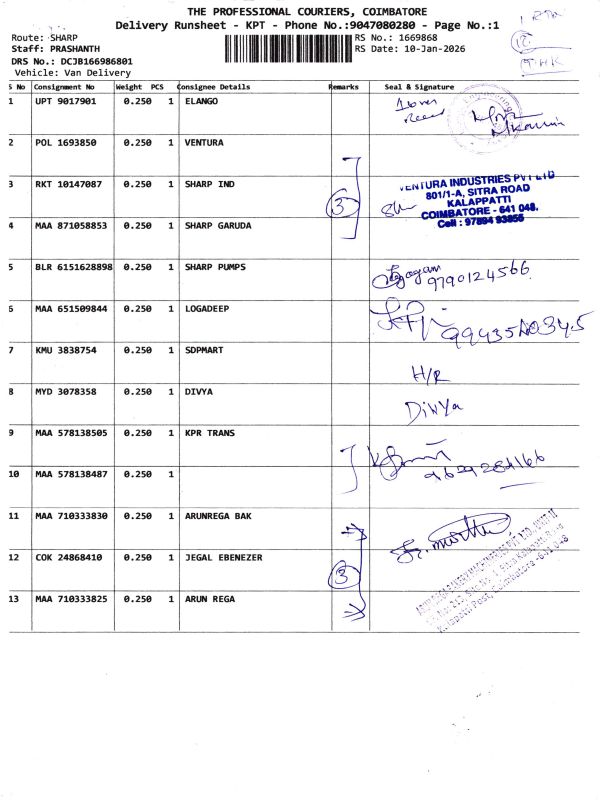 THE PROFESSIONAL COURIERS, COIMBATORE
Delivery Runsheet - KPT - Phone No.:9047080280 - Page No.:1
Route: SHARP
RS No.: 1669868
Staff: PRASHANTH
RS Date: 10-Jan-2026
DRS No.: DCJB166986801
Vehicle: Van Delivery
S No Consignment No Weight PCS Consignee Details Remarks Seal & Signature
1 UPT 9017901 0.250 1 ELANGO
2 POL 1693850 0.250 1 VENTURA
3 RKT 10147087 0.250 1 SHARP IND
VENTURA INDUSTRIES PVT LTD
801/1-A, SITRA ROAD
KALAPPATTI
COIMBATORE - 641 048.
Cell : 97894 93855
3
4 MAA 871058853 0.250 1 SHARP GARUDA
5 BLR 6151628898 0.250 1 SHARP PUMPS
9790124566
6 MAA 651509844 0.250 1 LOGADEEP
7 KMU 3838754 0.250 1 SDPMART
H/R
8 MYD 3078358 0.250 1 DIVYA
Divya
9 MAA 578138505 0.250 1 KPR TRANS
10 MAA 578138487 0.250 1
11 MAA 710333830 0.250 1 ARUNREGA BAK
12 COK 24868410 0.250 1 JEGAL EBENEZER
3
13 MAA 710333825 0.250 1 ARUN REGA